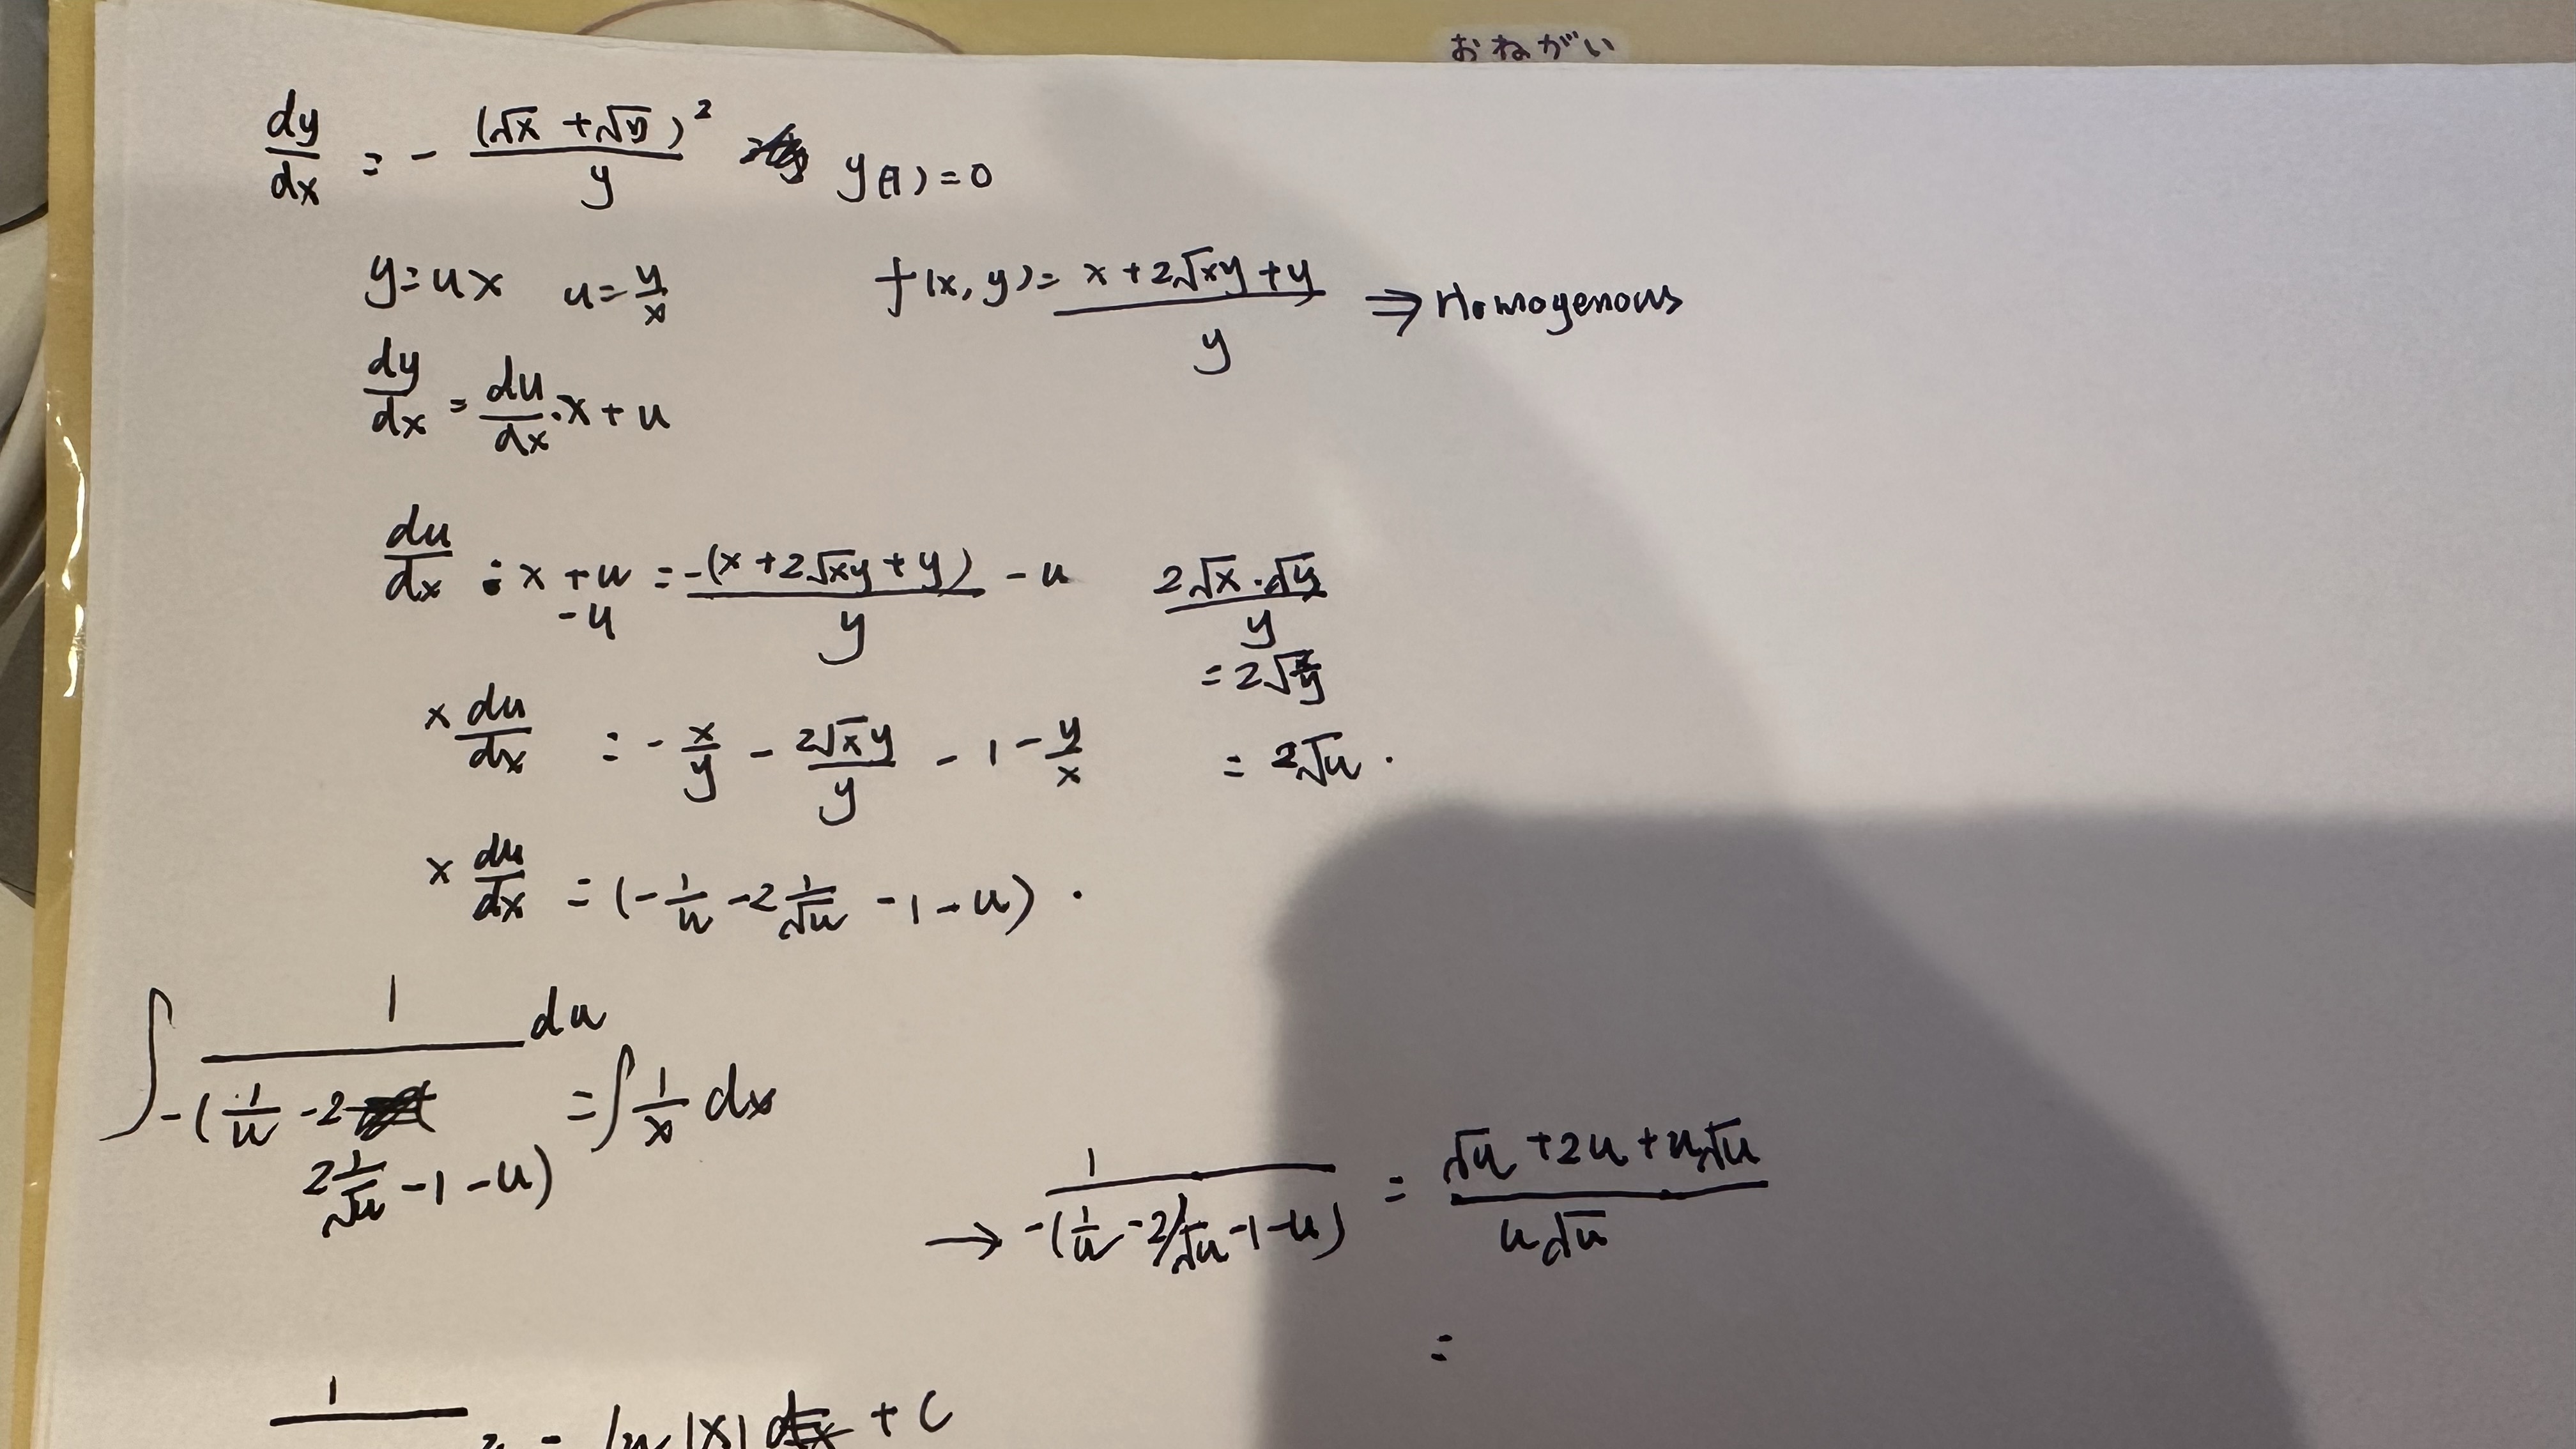 おねがい
dy/dx = - (√x + √y)² / y y(1) = 0
y = ux u = y/x f(x, y) = x + 2√xy + y / y ⇒ Homogenous
dy/dx = du/dx · x + u
du/dx · x + u - u = -(x + 2√xy + y) / y - u
2√x · √y / y
= 2√x/y
x du/dx = - x/y - 2√xy / y - 1 - y/x
= 2√u ·
x du/dx = (- 1/u - 2 1/√u - 1 - u) ·
∫ 1 / -(1/u - 2 2 1/√u - 1 - u) du = ∫ 1/x dx
→ 1 / -(1/u - 2 1/√u - 1 - u) = √u + 2u + u√u / u√u
=
1 = ln |x| + C